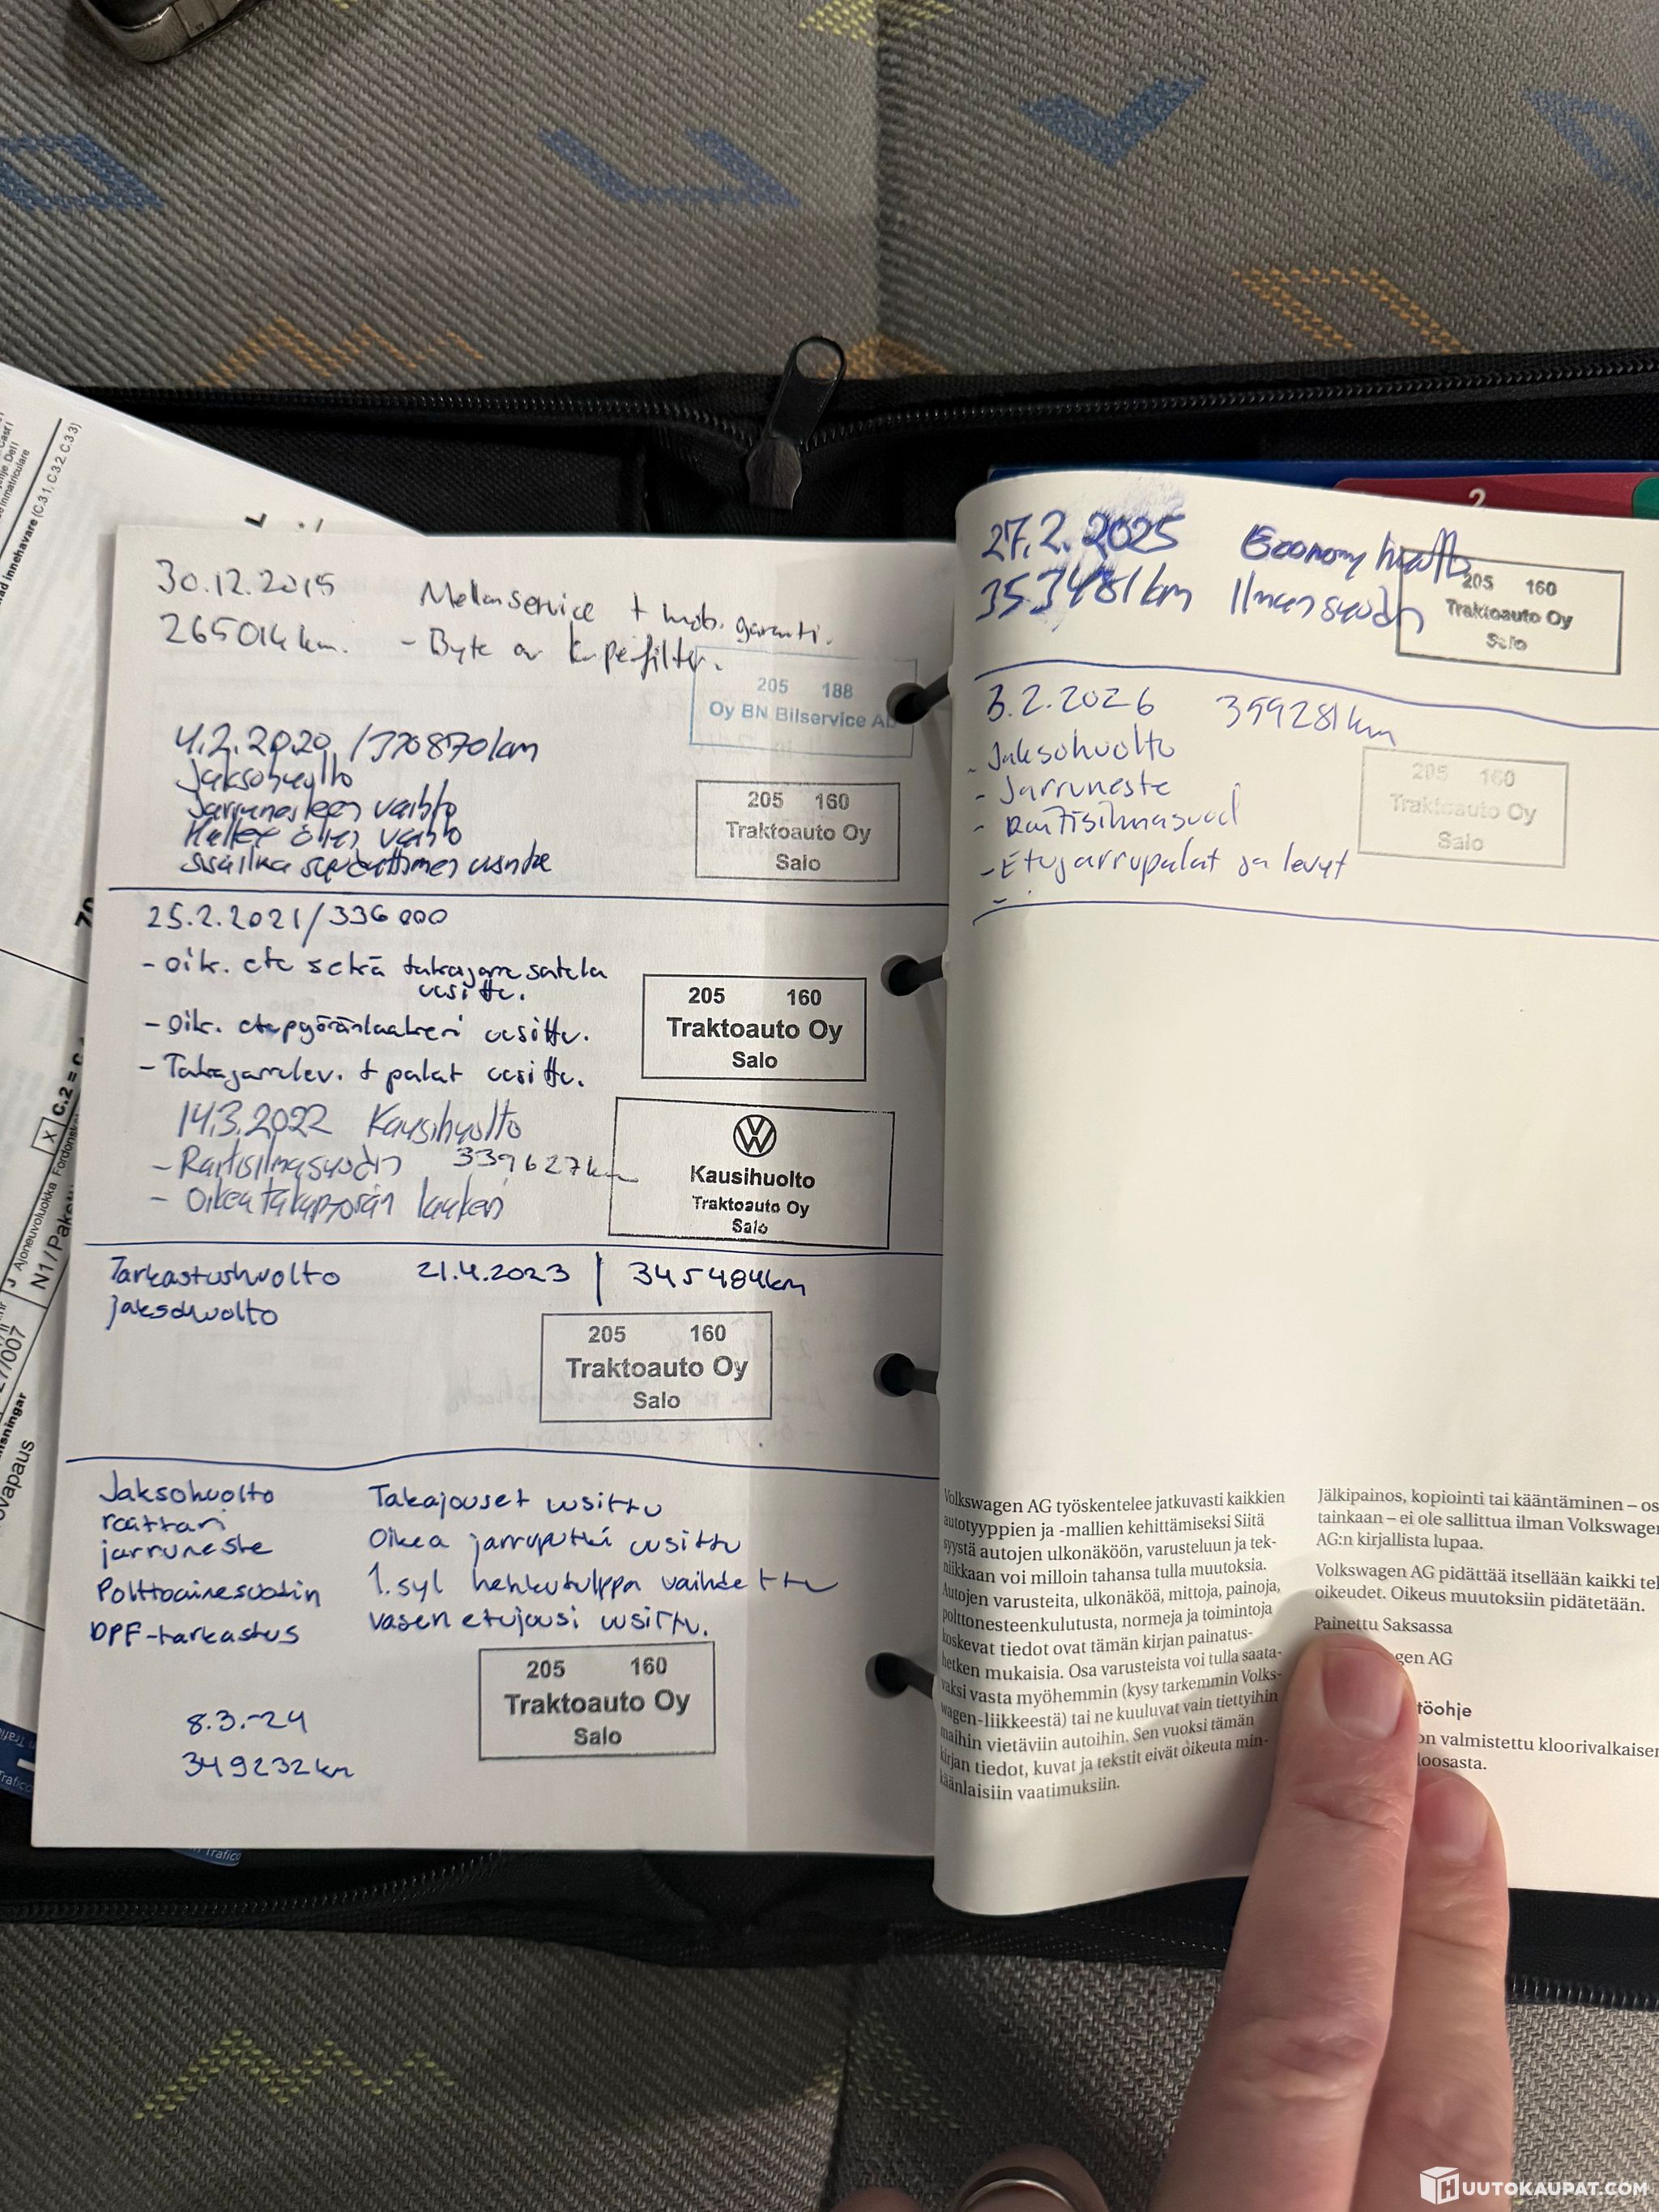 30.12.2015 Mellanservice + mob. garanti.
265014 km. - Byte av kupefilter.
205 188
Oy BN Bilservice Ab
4.2.2020 /330870km
Jaksohuolto
Jarrunesteen vaihto
Haldex öljyn vaihto
205 160
Traktoauto Oy
Salo
25.2.2021/336000
- oik. etu sekä takajarrusatula
uusittu.
- Oik. etupyöränlaakeri uusittu.
- Takajarrulev. + palat uusittu.
205 160
Traktoauto Oy
Salo
14.3.2022 Kausihuolto
- Raitisilmasuodin 339627km
- Oikea takapyörän laakeri
Kausihuolto
Traktoauto Oy
Salo
Tarkastushuolto 21.4.2023 | 345484km
jaksohuolto
205 160
Traktoauto Oy
Salo
Jaksohuolto
raittari
jarruneste
Polttoainesuodin
DPF-tarkastus
Takajouset uusittu
Oikea jarruputki uusittu
1.syl hehkutulppa vaihdettu
vasen etujousi uusittu.
8.3.-24
349232km
205 160
Traktoauto Oy
Salo
27.2.2025 Economy huolto
353481km Ilmansuodin
205 160
Traktoauto Oy
Salo
3.2.2026 359281km
- Jaksohuolto
- Jarruneste
- Raitisilmasuod
- Etujarrupalat ja levyt
205 160
Traktoauto Oy
Salo
Volkswagen AG työskentelee jatkuvasti kaikkien
autotyyppien ja -mallien kehittämiseksi Siitä
syystä autojen ulkonäköön, varusteluun ja tek-
niikkaan voi milloin tahansa tulla muutoksia.
Autojen varusteita, ulkonäköä, mittoja, painoja,
polttonesteenkulutusta, normeja ja toimintoja
koskevat tiedot ovat tämän kirjan painatus-
hetken mukaisia. Osa varusteista voi tulla saata-
vaksi vasta myöhemmin (kysy tarkemmin Volks-
wagen-liikkeestä) tai ne kuuluvat vain tiettyihin
maihin vietäviin autoihin. Sen vuoksi tämän
kirjan tiedot, kuvat ja tekstit eivät oikeuta min-
käänlaisiin vaatimuksiin.
Jälkipainos, kopiointi tai kääntäminen – os
tainkaan – ei ole sallittua ilman Volkswagen
AG:n kirjallista lupaa.
Volkswagen AG pidättää itsellään kaikki te
oikeudet. Oikeus muutoksiin pidätetään.
Painettu Saksassa
gen AG
töohje
on valmistettu kloorivalkaisen
loosasta.
2
innehavare (C.3.1, C.3.2, C.3.3)
X C.2 =
J Ajoneuvoluokka Fordonsk
N1/Pake
27/007
ovapaus
Trafic
HUUTOKAUPAT.COM